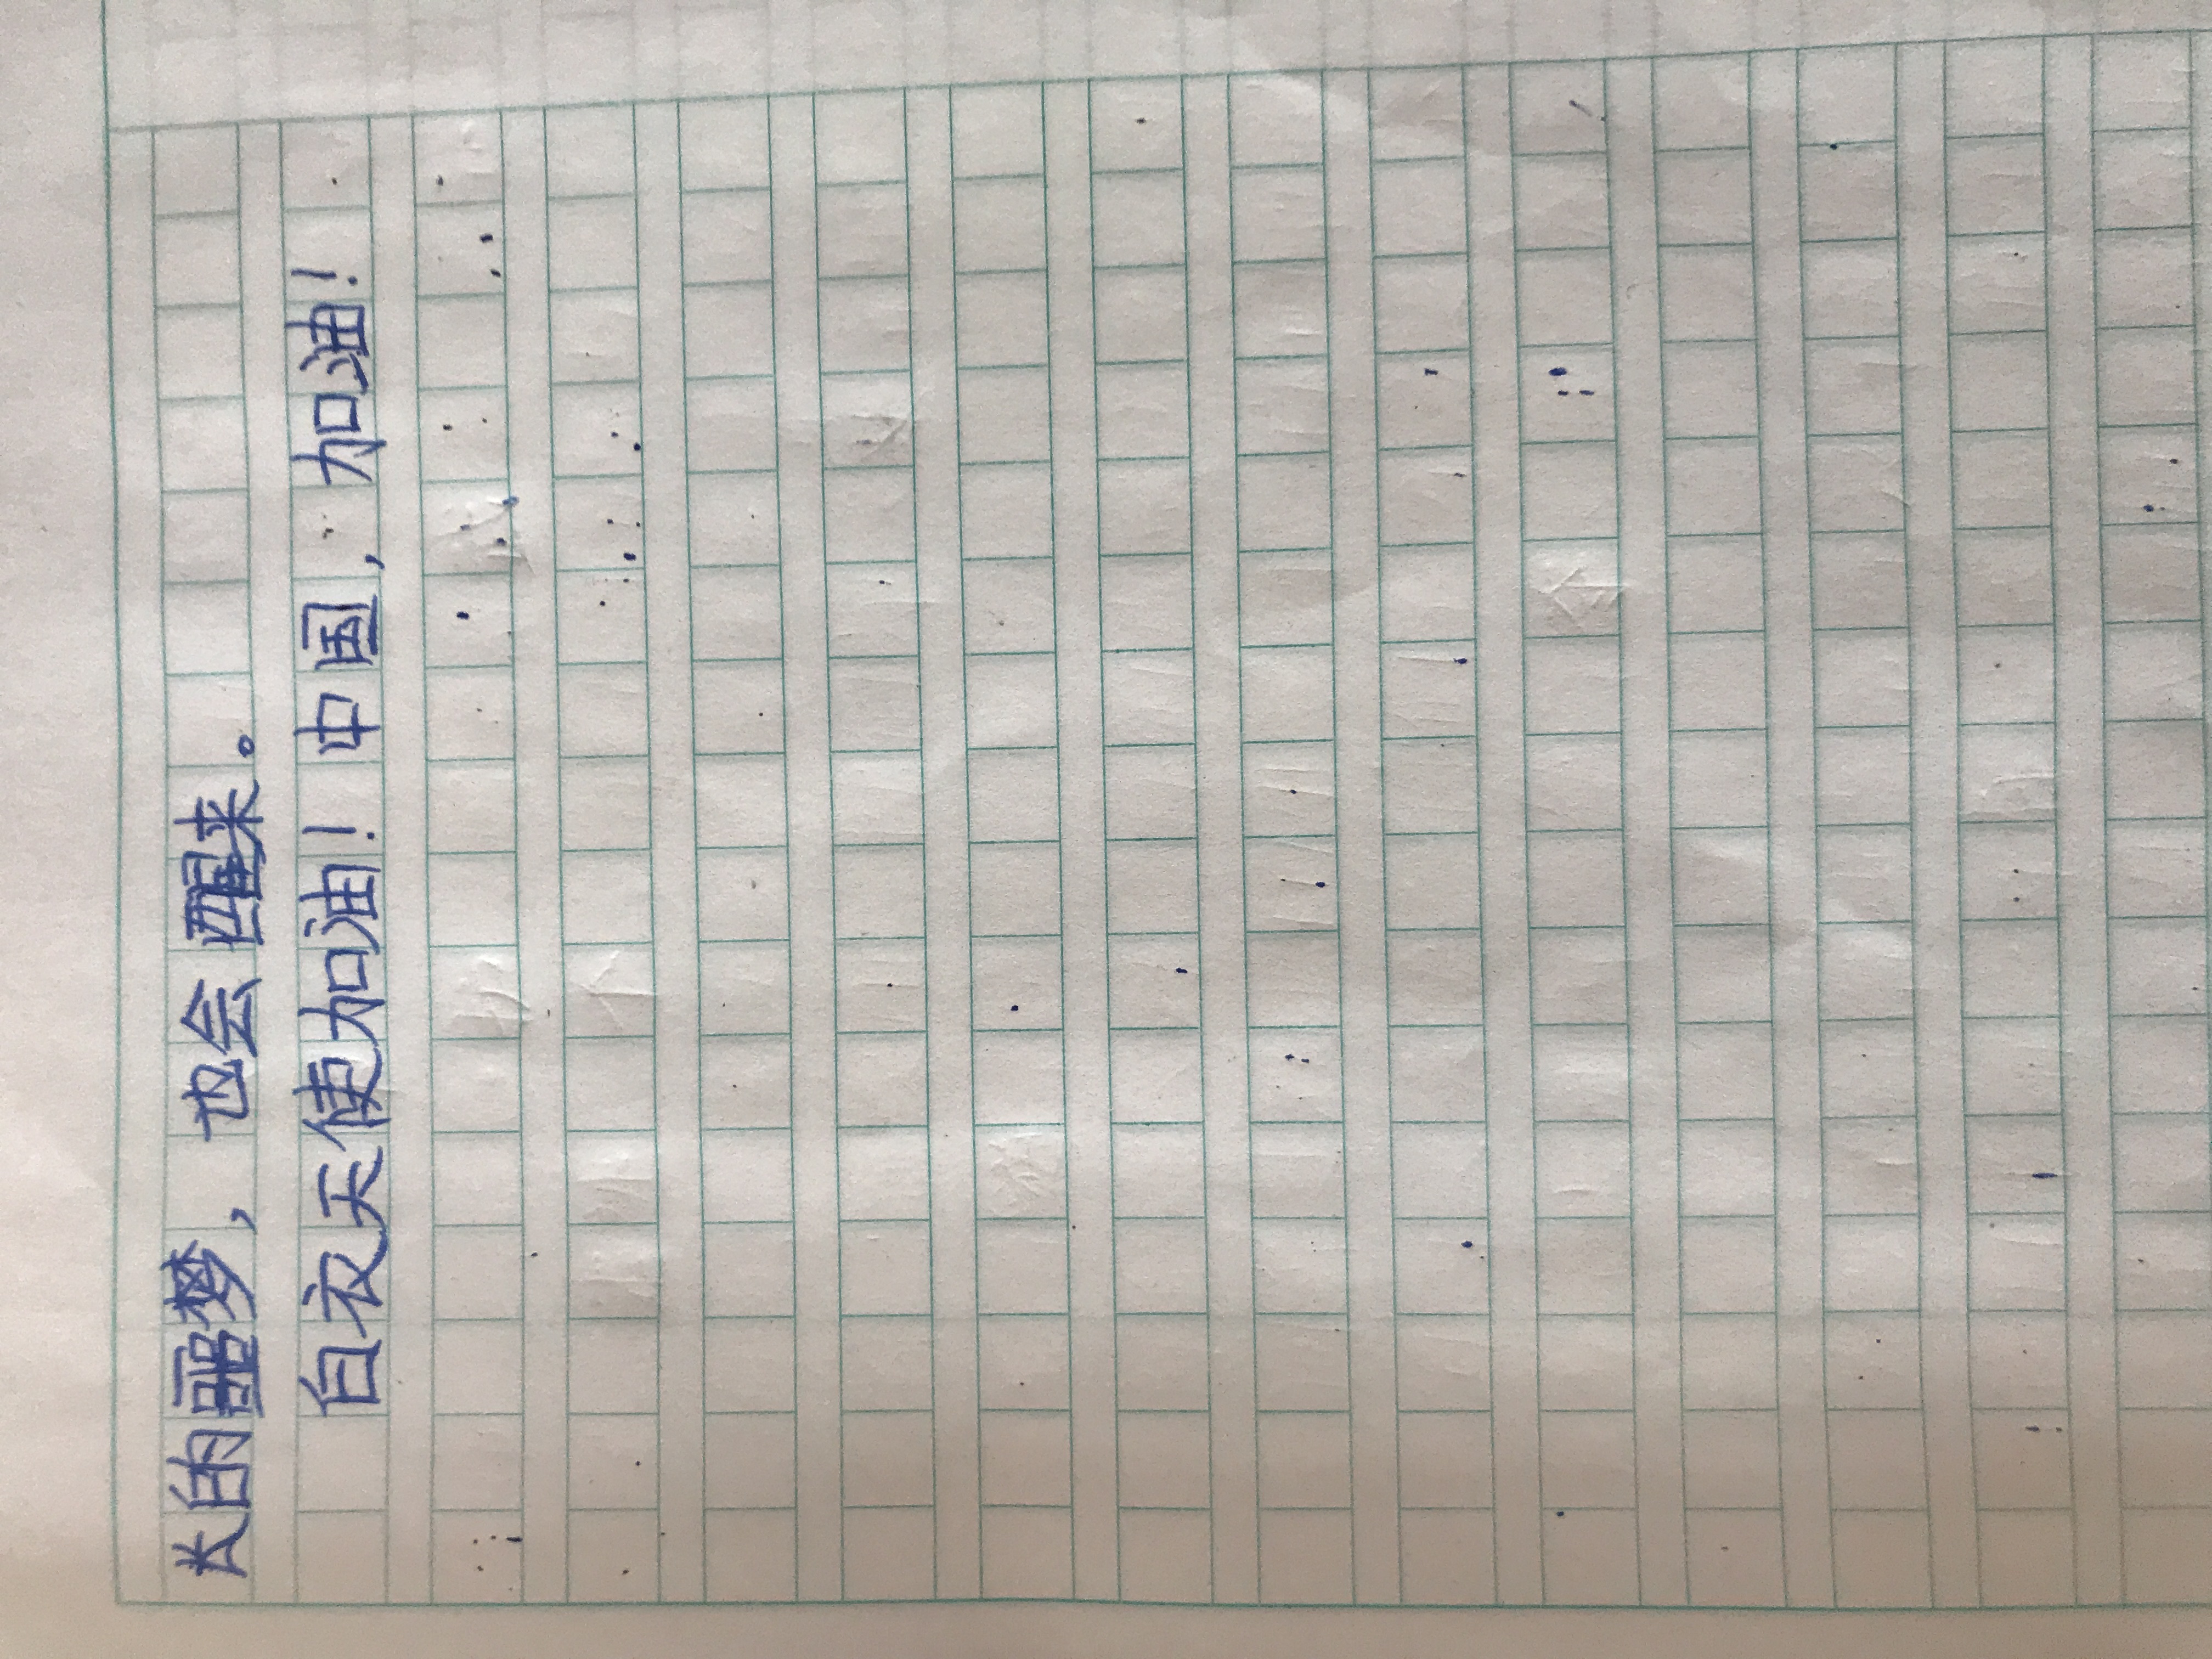 长的噩梦，也会醒来。
白衣天使加油！中国，加油！